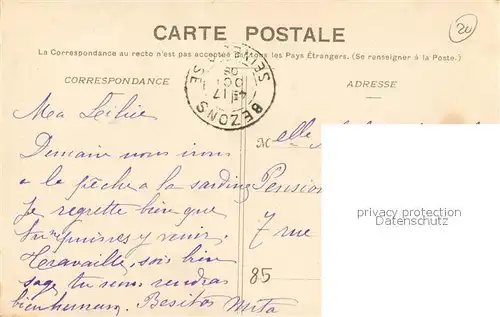 CARTE POSTALE
20
La Correspondance au recto n'est pas acceptée par tous les Pays Étrangers. (Se renseigner à la Poste.)
CORRESPONDANCE
ADRESSE
SEINE OISE
BEZONS
17
OCT
Ma
Demain nous irons
a la pêche a la sardine
Je regrette bien que
tu ne puisses y venir.
Travaille, sois bien
sage, tu nous rendras
bien heureux. Besitos
Melle
Pension
7 rue
85
privacy protection
Datenschutz